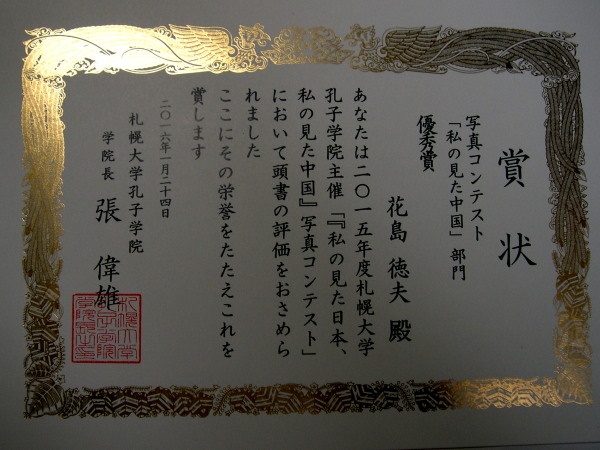 賞状
写真コンテスト
「私の見た中国」部門
優秀賞
花島 徳夫 殿
あなたは二〇一五年度札幌大学
孔子学院主催「『私の見た日本、
私の見た中国』写真コンテスト」
において頭書の評価をおさめら
れました
ここにその栄誉をたたえこれを
賞します
二〇一六年一月二十四日
札幌大学孔子学院
学院長 張 偉雄
札幌大学
孔子学院
学院長之印